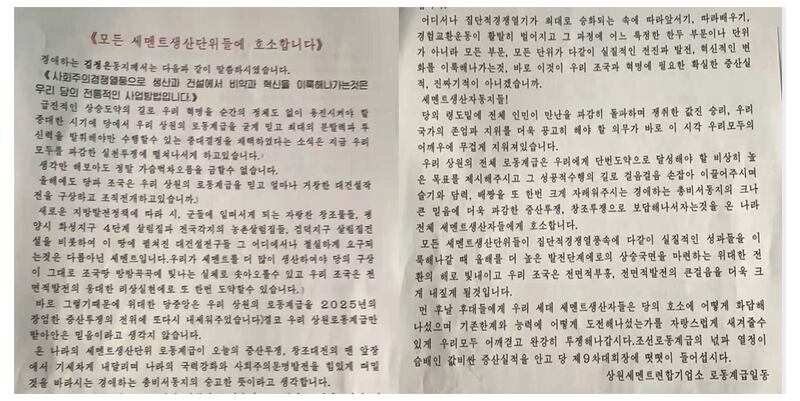 《모든 세멘트생산단위들에 호소합니다》
경애하는 김정은동지께서는 다음과 같이 말씀하시였습니다.
《사회주의경쟁열풍으로 생산과 건설에서 비약과 혁신을 이룩해나가는것은
우리 당의 전통적인 사업방법입니다.》
급진적인 상승도약의 길로 우리 혁명을 순간의 정체도 없이 용진시켜야 할
중대한 시기에 당에서 우리 상원의 로동계급을 굳게 믿고 최대의 분발력과 투
신력을 발휘해야만 수행할수 있는 중대결정을 채택하였다는 소식은 지금 우리
모두를 과감한 실천투쟁에 떨쳐나서게 하고있습니다.
생각만 해보아도 정말 가슴벅차오름을 금할수 없습니다.
올해에도 당과 조국은 우리 상원의 로동계급을 믿고 얼마나 거창한 대건설작
전을 구상하고 조직전개하고있습니까.
새로운 지방발전정책에 따라 시, 군들에 일떠서게 되는 자랑찬 창조물들, 평
양시 화성지구 4단계 살림집과 전국각지의 농촌살림집들, 검덕지구 살림집건
설을 비롯하여 이 땅에 펼쳐진 대건설전구들 그 어디에서나 절실하게 요구되
는것은 다름아닌 세멘트입니다.우리가 세멘트를 더 많이 생산하여야 당의 구상
이 그대로 조국땅 방방곡곡에 빛나는 실체로 솟아오를수 있고 우리 조국은 전
면적발전의 웅대한 리상실현에로 또 한번 도약할수 있습니다.
바로 그렇기때문에 위대한 당중앙은 우리 상원의 로동계급을 2025년의
장엄한 증산투쟁의 전위에 또다시 내세워주었습니다.결코 우리 상원로동계급만
받아안은 믿음이라고 생각지 않습니다.
온 나라의 세멘트생산단위 로동계급이 오늘의 증산투쟁, 창조대전의 맨 앞장
에서 기세차게 내달리며 나라의 국력강화와 사회주의문명발전을 힘있게 떠밀
것을 바라시는 경애하는 총비서동지의 숭고한 뜻이라고 생각합니다.
어디서나 집단적경쟁열기가 최대로 승화되는 속에 따라앞서기, 따라배우기,
경험교환운동이 활발히 벌어지고 그 과정에 어느 특정한 한두 부문이나 단위
가 아니라 모든 부문, 모든 단위가 다같이 실질적인 전진과 발전, 혁신적인 변
화를 이룩해나가는것, 바로 이것이 우리 조국과 혁명에 필요한 확실한 증산실
적, 진짜기적이 아니겠습니까.
세멘트생산자동지들!
당의 령도밑에 전체 인민이 만난을 과감히 돌파하며 쟁취한 값진 승리, 우리
국가의 존엄과 지위를 더욱 공고히 해야 할 의무가 바로 이 시각 우리모두의
어깨우에 무겁게 지워져있습니다.
우리 상원의 전체 로동계급은 우리에게 단번도약으로 달성해야 할 비상히 높
은 목표를 제시해주시고 그 성공적수행의 길로 걸음걸음 손잡아 이끌어주시며
슬기와 담력, 배짱을 또 한번 크게 자래워주시는 경애하는 총비서동지의 크나
큰 믿음에 더욱 과감한 증산투쟁, 창조투쟁으로 보답해나서자는것을 온 나라
전체 세멘트생산자들에게 호소합니다.
모든 세멘트생산단위들이 집단적경쟁열풍속에 다같이 실질적인 성과들을 이
룩해나갈 때 올해를 더 높은 발전단계에로의 상승국면을 마련하는 위대한 전
환의 해로 빛내이고 우리 조국은 전면적부흥, 전면적발전의 큰걸음을 더욱 크
게 내짚게 될것입니다.
먼 후날 후대들에게 우리 세대 세멘트생산자들은 당의 호소에 어떻게 화답해
나섰으며 기존한계와 능력에 어떻게 도전해나섰는가를 자랑스럽게 새겨줄수
있게 우리모두 어깨겯고 완강히 투쟁해나갑시다.조선로동계급의 넋과 열정이
슴배인 값비싼 증산실적을 안고 당 제9차대회장에 떳떳이 들어섭시다.
상원세멘트련합기업소 로동계급일동